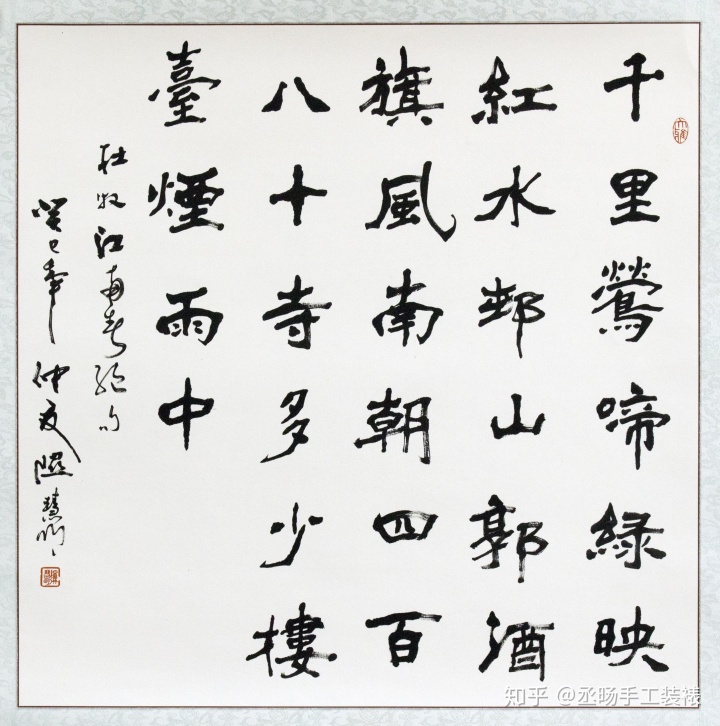 千里鶯啼綠映
紅水邨山郭酒
旗風南朝四百
八十寺多少樓
臺煙雨中
杜牧江南春絕句
癸巳年仲夏
知乎 @丞旸手工装裱